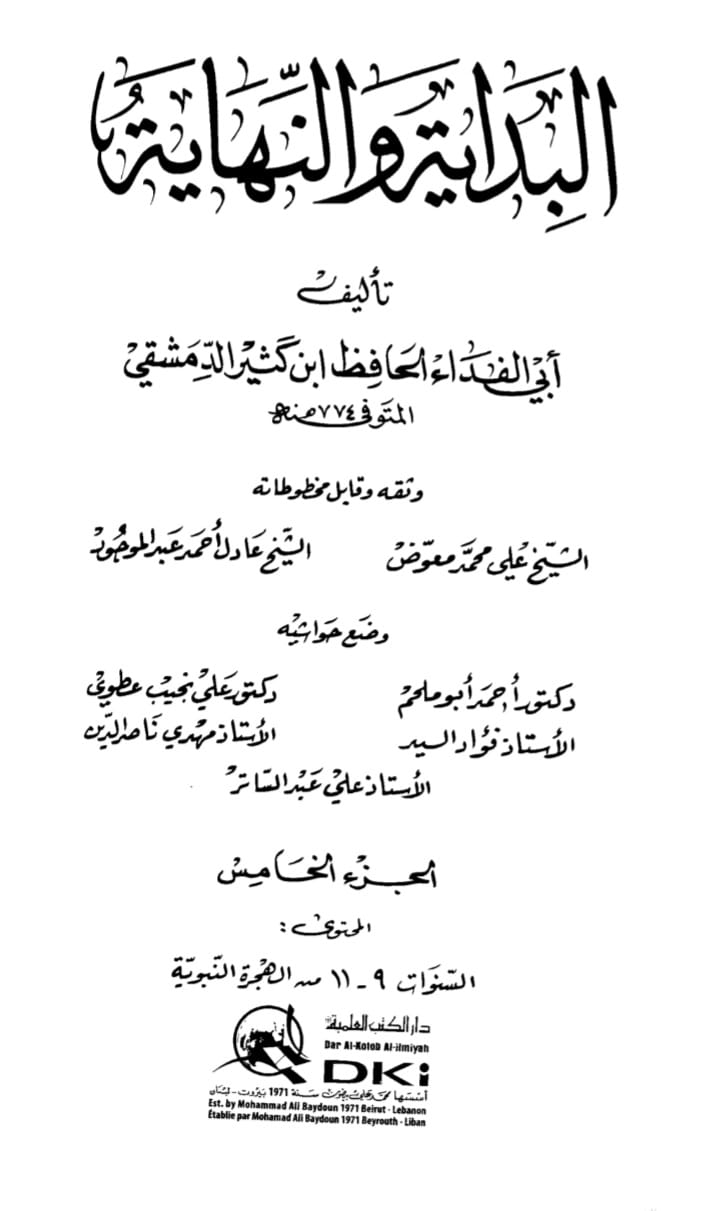 البِدَاية وَالنِّهَاية
تأليف
أبي الفداء الحَافِظ ابن كَثير الدِّمَشقي
المتَوفى ٧٧٤ سنه هـ
وثقه وقابل مخطوطاته
الشيّخ علي محمَّد معوّض الشيّخ عَادل أحمَد عَبد الموجُود
وضَع حَواشيْه
دكتور أحمَد أبو ملحم دكتور عَلي نجيب عطوي
الأستاذ فؤاد السيد الأستاذ مهْدي نَاصر الدّين
الأستاذ علي عَبْد السَّاتر
الجزء الخَامِس
المحتوى :
السّنوَات ٩ - ١١ من الهْجرة النّبويّة
دار الكتب العلمية
Dar Al-Kotob Al-ilmiyah
DKi
أسسها محمد علي بيضون سنة 1971 بيروت - لبنان
Est. by Mohammad Ali Baydoun 1971 Beirut - Lebanon
Établie par Mohamad Ali Baydoun 1971 Beyrouth - Liban